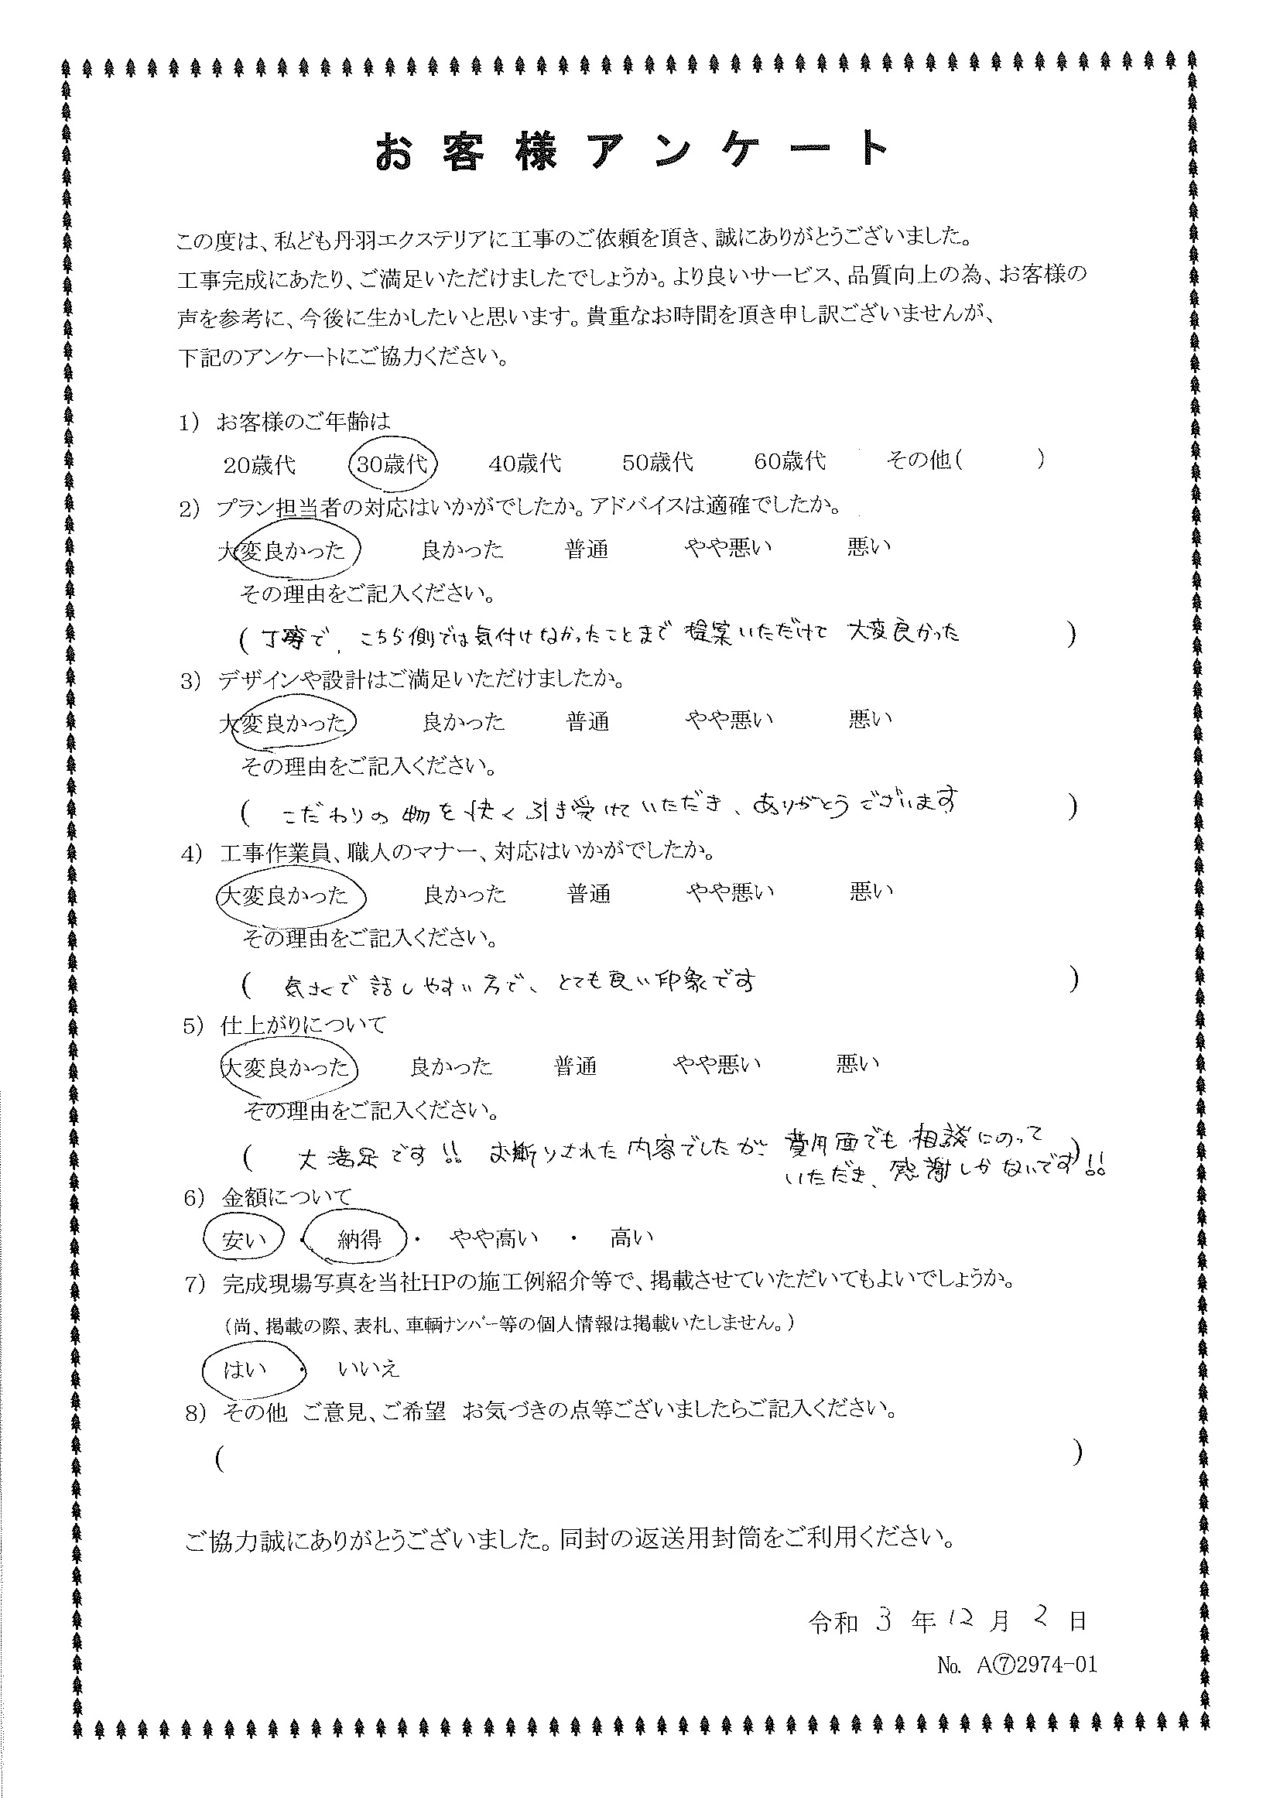 お客様アンケート
この度は、私ども丹羽エクステリアに工事のご依頼を頂き、誠にありがとうございました。
工事完成にあたり、ご満足いただけましたでしょうか。より良いサービス、品質向上の為、お客様の
声を参考に、今後に生かしたいと思います。貴重なお時間を頂き申し訳ございませんが、
下記のアンケートにご協力ください。
1) お客様のご年齢は
20歳代 30歳代 40歳代 50歳代 60歳代 その他( )
2) プラン担当者の対応はいかがでしたか。アドバイスは適確でしたか。
大変良かった 良かった 普通 やや悪い 悪い
その理由をご記入ください。
( 丁寧で、こちら側では気付けなかったことまで 提案いただけて 大変良かった )
3) デザインや設計はご満足いただけましたか。
大変良かった 良かった 普通 やや悪い 悪い
その理由をご記入ください。
( こだわりの物を快く引き受けていただき、ありがとうございます )
4) 工事作業員、職人のマナー、対応はいかがでしたか。
大変良かった 良かった 普通 やや悪い 悪い
その理由をご記入ください。
( 気さくで話しやすい方で、とても良い印象です )
5) 仕上がりについて
大変良かった 良かった 普通 やや悪い 悪い
その理由をご記入ください。
( 大満足です!! お断りされた内容でしたが 費用面でも相談にのって )
いただき、感謝しかないです!!
6) 金額について
安い ・ 納得 ・ やや高い ・ 高い
7) 完成現場写真を当社HPの施工例紹介等で、掲載させていただいてもよいでしょうか。
(尚、掲載の際、表札、車輌ナンバー等の個人情報は掲載いたしません。)
はい ・ いいえ
8) その他 ご意見、ご希望 お気づきの点等ございましたらご記入ください。
( )
ご協力誠にありがとうございました。同封の返送用封筒をご利用ください。
令和 3 年 12 月 2 日
№ A⑦2974-01